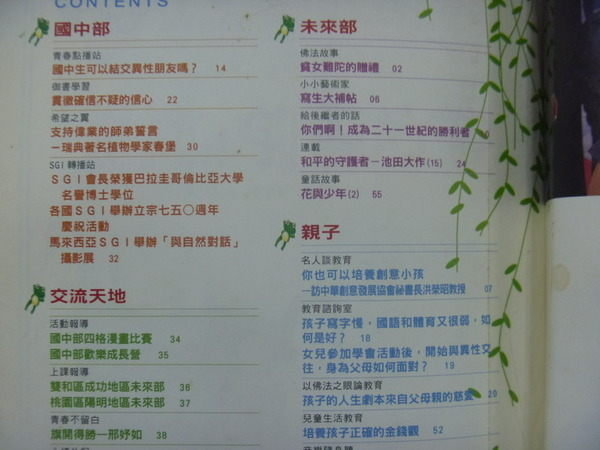 CONTENTS
國中部
青春點播站
國中生可以結交異性朋友嗎？ 14
御書學習
貫徹確信不疑的信心 22
希望之翼
支持偉業的師弟誓言
－瑞典著名植物學家春堡 30
SGI 轉播站
ＳＧＩ會長榮獲巴拉圭哥倫比亞大學
名譽博士學位
各國ＳＧＩ舉辦立宗七五○週年
慶祝活動
馬來西亞ＳＧＩ舉辦「與自然對話」
攝影展 32
交流天地
活動報導
國中部四格漫畫比賽 34
國中部歡樂成長營 35
上課報導
雙和區成功地區未來部 36
桃園區陽明地區未來部 37
青春不留白
旗開得勝－邢妤如 38
未來部
佛法故事
貧女難陀的贈禮 02
小小藝術家
寫生大補帖 06
給後繼者的話
你們啊！成為二十一世紀的勝利者
連載
和平的守護者－池田大作(15) 24
童話故事
花與少年(2) 55
親子
名人談教育
你也可以培養創意小孩
－訪中華創意發展協會祕書長洪榮昭教授 07
教育諮詢室
孩子寫字慢，國語和體育又很弱，如
何是好？ 18
女兒參加學會活動後，開始與異性交
往，身為父母如何面對？ 19
以佛法之眼論教育
孩子的人生劇本來自父母親的慈愛 20
兒童生活教育
培養孩子正確的金錢觀 52